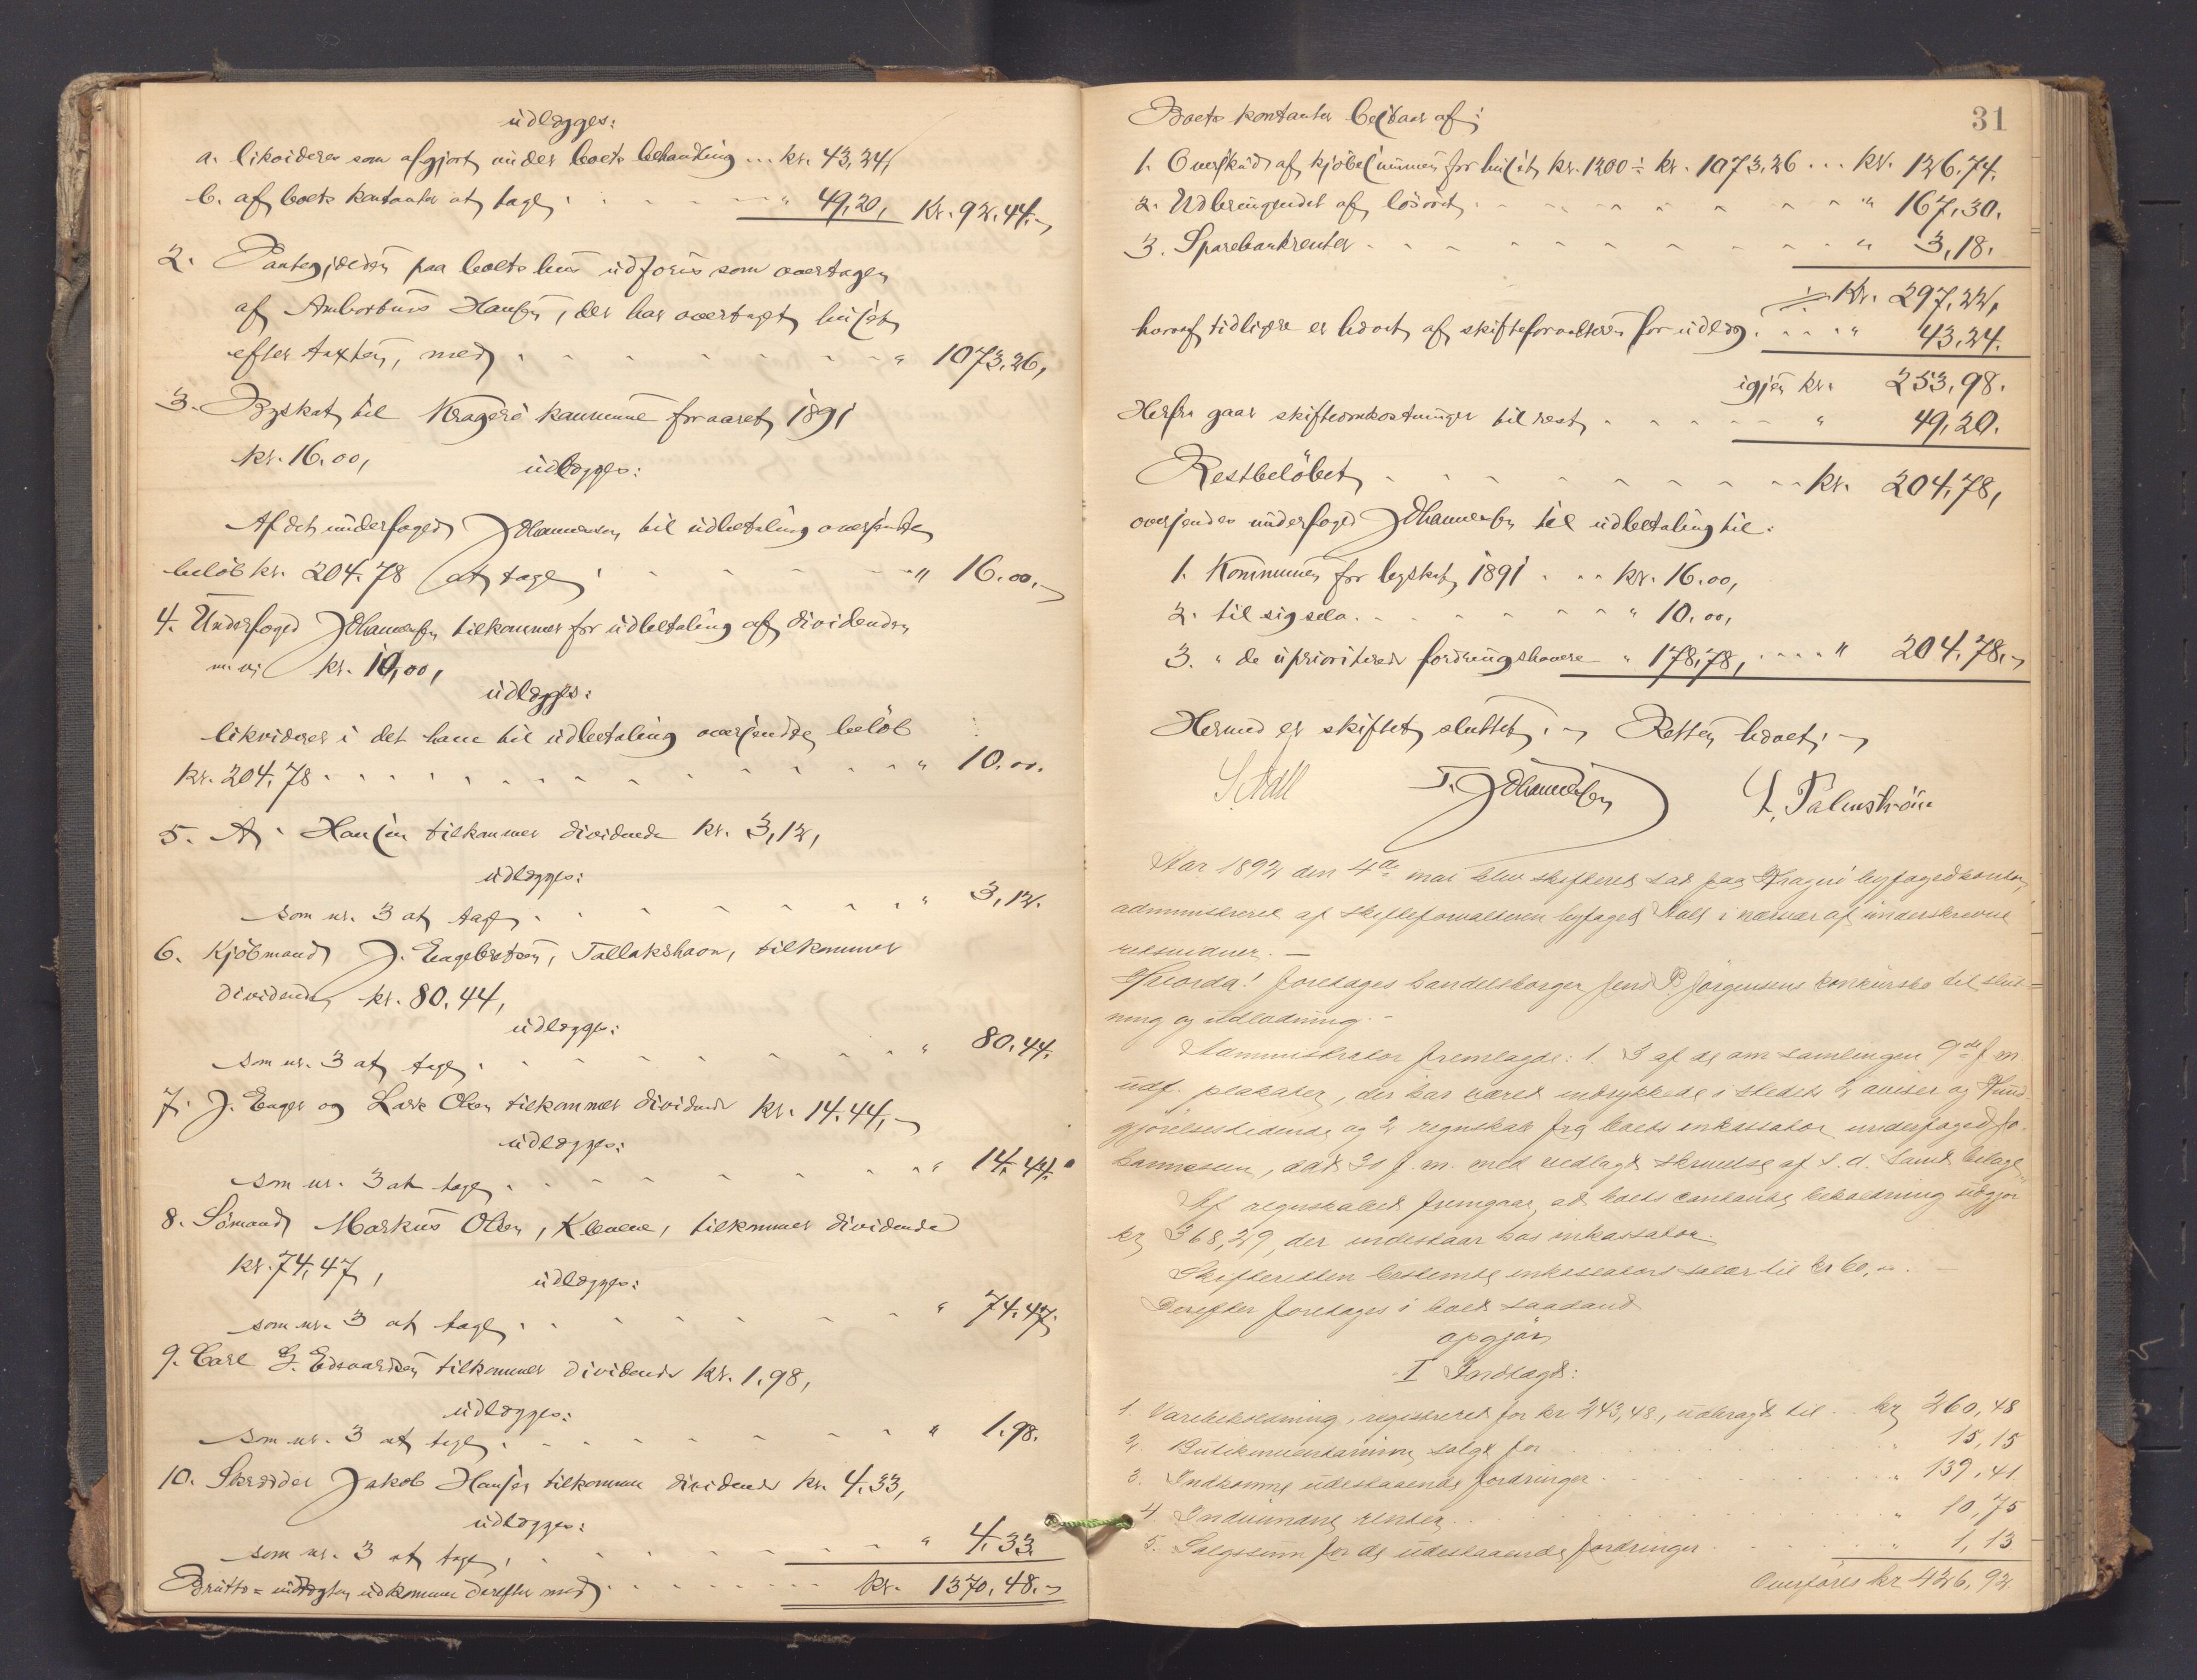 udlægges:
a. likvideres som afgjort under boets behandling ... kr. 43,24,
b. af boets kontanter at tage . . . . . " 49,20, Kr. 92.44.
2. Pantegjælden paa boets hus udføres som overtagen
af Amborbius Hansen, der har overtaget huset
efter taxten, med . . . . . . . " 1073,26,
3. Byskat til Kragerø kommune for aaret 1891
kr. 16.00, udlægges:
Af det underfoged Johannesen til udbetaling oversendte
beløb kr. 204.78 at tage . . . . . " 16.00.
4. Underfoged Johannesen tilkommer for udbetaling af dividenden
m. v. kr. 10,00,
udlægges:
likvideres i det ham til udbetaling oversendte beløb
kr. 204.78 . . . . . . . . . . " 10.00.
5. A. Hansen tilkommer dividende kr. 3,12,
udlægges:
som nr. 3 at tage . . . . . . . " 3,12.
6. Kjøbmand J. Engebretsen, Tallakshavn, tilkommer
dividende kr. 80.44,
udlægges:
som nr. 3 at tage . . . . . . . " 80.44.
7. J. Enger og Lars Olsen tilkommer dividende kr. 14.44,
udlægges:
som nr. 3 at tage . . . . . . . " 14.44.
8. Sømand Markus Olsen, tilkommer dividende
kr. 74.47, udlægges:
som nr. 3 at tage . . . . . . . " 74.47.
9. Carl G. Edvardsen tilkommer dividende kr. 1.98,
udlægges:
som nr. 3 at tage . . . . . . . " 1.98.
10. Skræder Jakob Hansen tilkommer dividende kr. 4.33,
udlægges:
som nr. 3 at tage . . . . . . . " 4.33.
Brutto=indtægten udkommer derefter med . . . . . kr. 1370,48.
31
Boets kontanter bestaar af:
1. Overskud af kjøbesummen for huset kr. 1200 ÷ kr. 1073,26 ... kr. 126.74.
2. Udbringendet af løsøret . . . . . . . " 167,30.
3. Sparebankrenter . . . . . . . . . " 3,18.
÷ Kr. 297,22,
hvoraf tidligere er hævet af skifteforvalteren for udlæg . . . . " 43,24.
igjen kr. 253,98.
Herfra gaar skifteomkostninger til rest . . . . . " 49,20.
Restbeløbet . . . . . . . . . kr. 204,78,
oversendes underfoged Johannesen til udbetaling til:
1. Kommunen for byskat 1891 . . . kr. 16.00,
2. til sig selv . . . . . . . " 10.00,
3. " de uprioriterede fordringshavere " 178,78, . . . . " 204.78.
Hermed er skiftet sluttet. Retten hævet.
S. Aall T. Johannesen L. Palmstrøm
Aar 1892 den 4de mai blev skifteret sat paa Kragerø byfogedkontor,
administreret af skifteforvalteren byfoged Aall i nærvær af underskrevne
retsvidner. —
Hvorda! foretages handelsborger Jens P. Jørgensens konkursbo til slut=
ning og udlodning. —
Administrator fremlagde: 1. 3 af de om samlingen 9de f. m.
udf. plakater, der har været indrykkede i stedets 2 aviser og Kund-
gjørelsestidende og 2 regnskab fra boets inkassator underfoged Jo-
hannesen, dat. 30 f. m. med vedlagt skrivelse af s. d. samt bilage.
Af regnskabet fremgaar, at boets contante beholdning udgjør
kr. 368,29, der indestaar hos inkassator.
Skifteretten bestemte inkassators salær til kr 60,00. —
Derefter foretages i boet saadant
opgjør
I Indtægt:
1. Varebeholdning, registreret for kr 243,48, udbragt til . . kr 260,48
2. Butikinventarium solgt for . . . . . . " 15,15
3. Indkomne udestaaende fordringer . . . . . . " 139,41
4. Indvundne renter . . . . . . " 10,75
5. Salgssum for de udestaaende fordringer . . . . . . " 1,13
Overføres kr 426,92